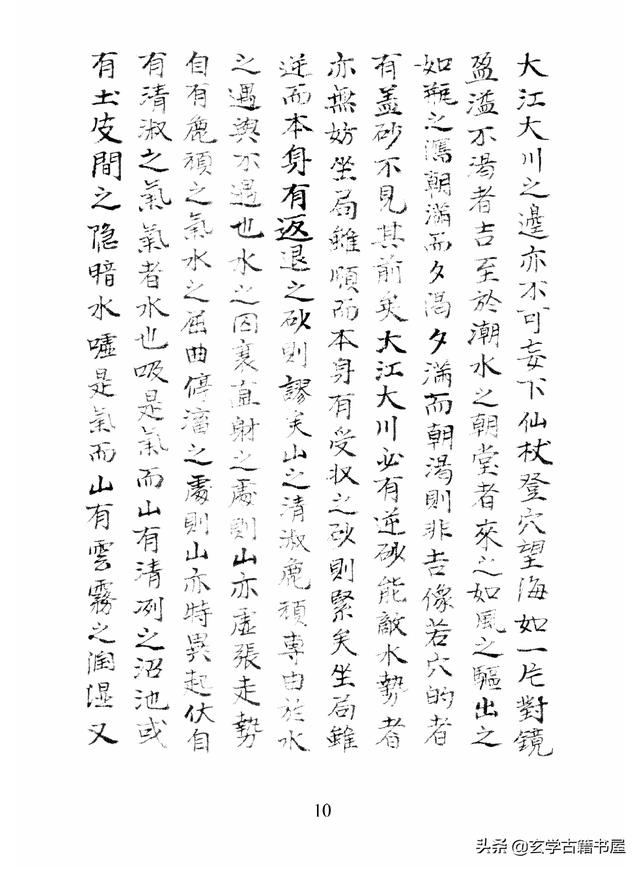 大江大川之邊亦不可妄下仙杖登穴望海如一片對鏡
盈溢不渴者吉至於潮水之朝堂者來之如風之驅出之
如瓶之瀉朝滿而夕渴夕滿而朝渴則非吉像若穴的者
有蓋砂不見其前矣大江大川必有逆砂能敵水勢者
亦無妨坐局雖順而本身有受収之砂則緊矣坐局雖
逆而本身有返退之砂則謬矣山之清淑麁頑專由於水
之遇與不遇也水之囚裹直射之處則山亦虛張走勢
自有麁頑之氣水之屈曲停滀之處則山亦特異起伏自
有清淑之氣氣者水也吸是氣而山有清冽之沼池或
有土皮間之隐暗水噓是氣而山有雲霧之潤湿又
10
头条@玄学古籍书屋